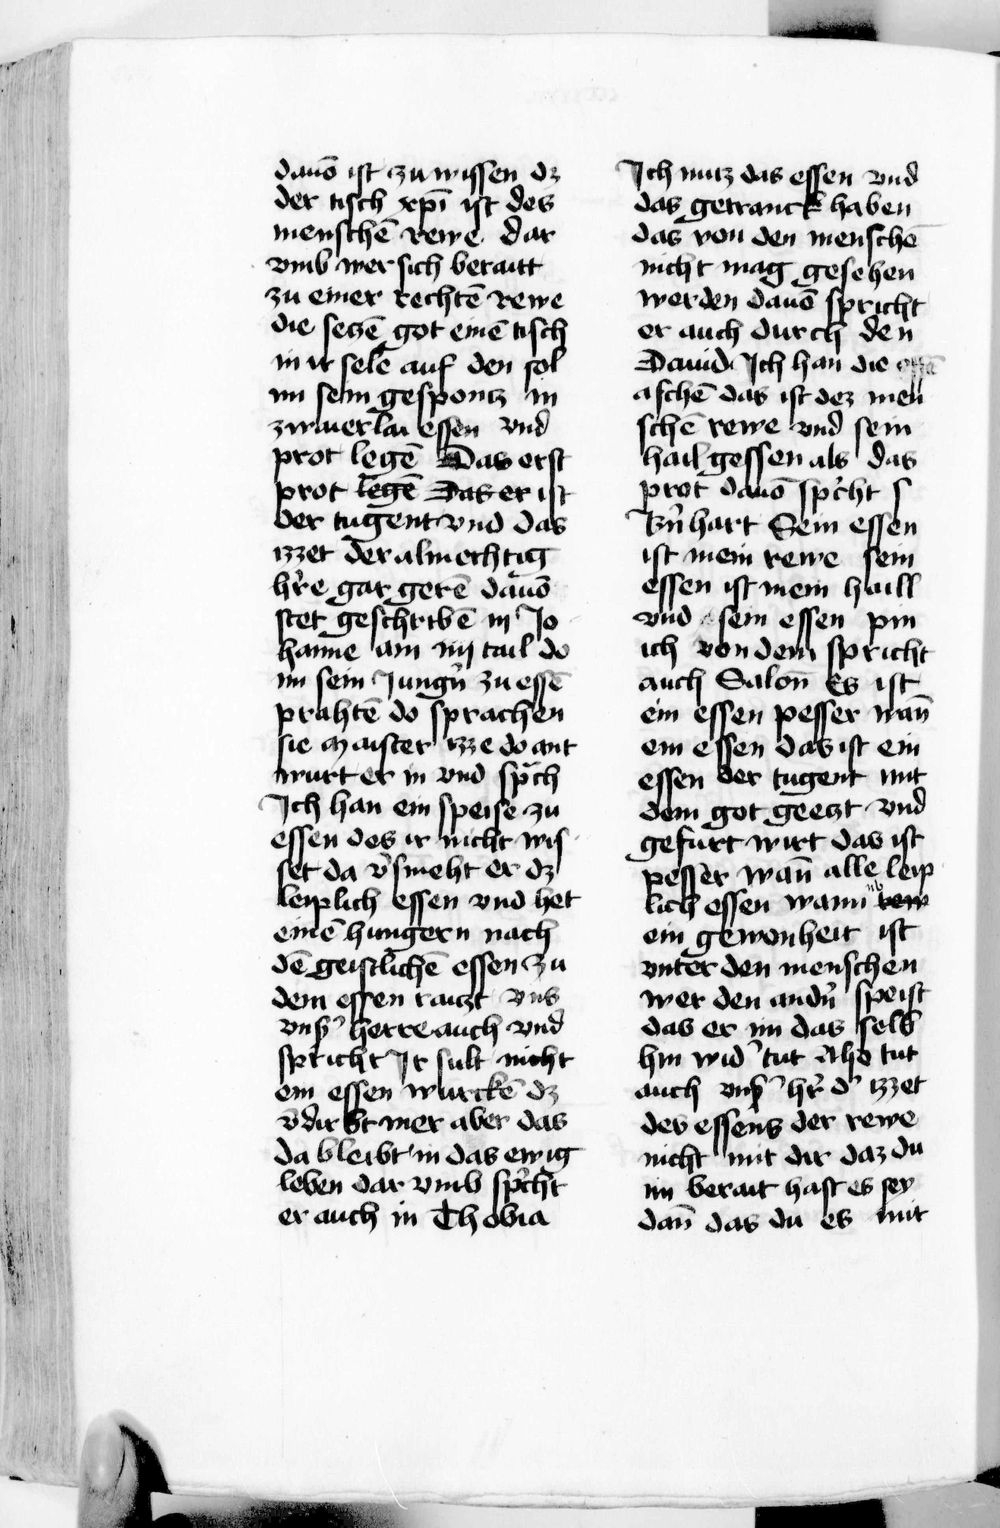 dauō ist zu wissen dz
der tisch xp̄i ist des
menschē rewe dar
vmb wer sich beraitt
zu einer rechtē rewe
die seczē got einē tisch
in ir sele auf den sol
im sein gesponcz in
zwaierlai essen vnd
prot legē Das erst
prot legē Das er ist
der tugent vnd das
izzet der almechtig
hr̄e gar gerē dauō
stet geschribē in Jo
hanne am iiij tail do
im sein Jungn̄ zu essē
prahtē do sprachen
sie maister izze do ant
wurt er in vnd sp̄ch
Ich han ein speise zu
essen des ir nicht wis
set da v̄smeht er dz
leiplich essen vnd het
einē hungern nach
dē geistlichē essen zu
dem essen raiczt vns
vnsʼ herre auch vnd
spricht Ir sult nicht
ein essen wurckē dz
v̄dirbt mer aber das
da bleibt in das ewig
leben dar vmb sp̄cht
er auch in Thobia
Ich nucz das essen vnd
das getranck haben
das von den menschē
nicht mag gesehen
werden dauō spricht
er auch durch den
Dauid Ich han die
aschē das ist dez men
schē rewe vnd sein
hail gessen als das
prot dauō sp̄cht s
Bn̄hart Sein essen
ist mein rewe sein
essen ist mein haill
vnd sein essen pin
ich von dem spricht
auch Salon̄ Es ist
ein essen pesser wan̄
ein essen das ist ein
essen der tugent mit
dem got geeczt vnd
gefurt wirt das ist
pesser wan̄ alle leip
lich essen wann
ein gewonheit ist
vnter den menschen
wer den andn̄ speist
das er im das selb
hin widʼ tut Also tut
auch vnsʼ hr̄ dʼ izzet
des essens der rewe
nicht mit dir daz du
im berait hast es sey
dan̄ das du es mit